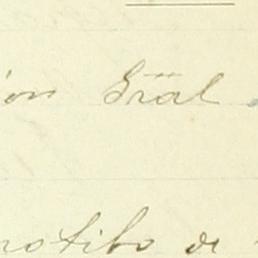 ion Gral
motibo de